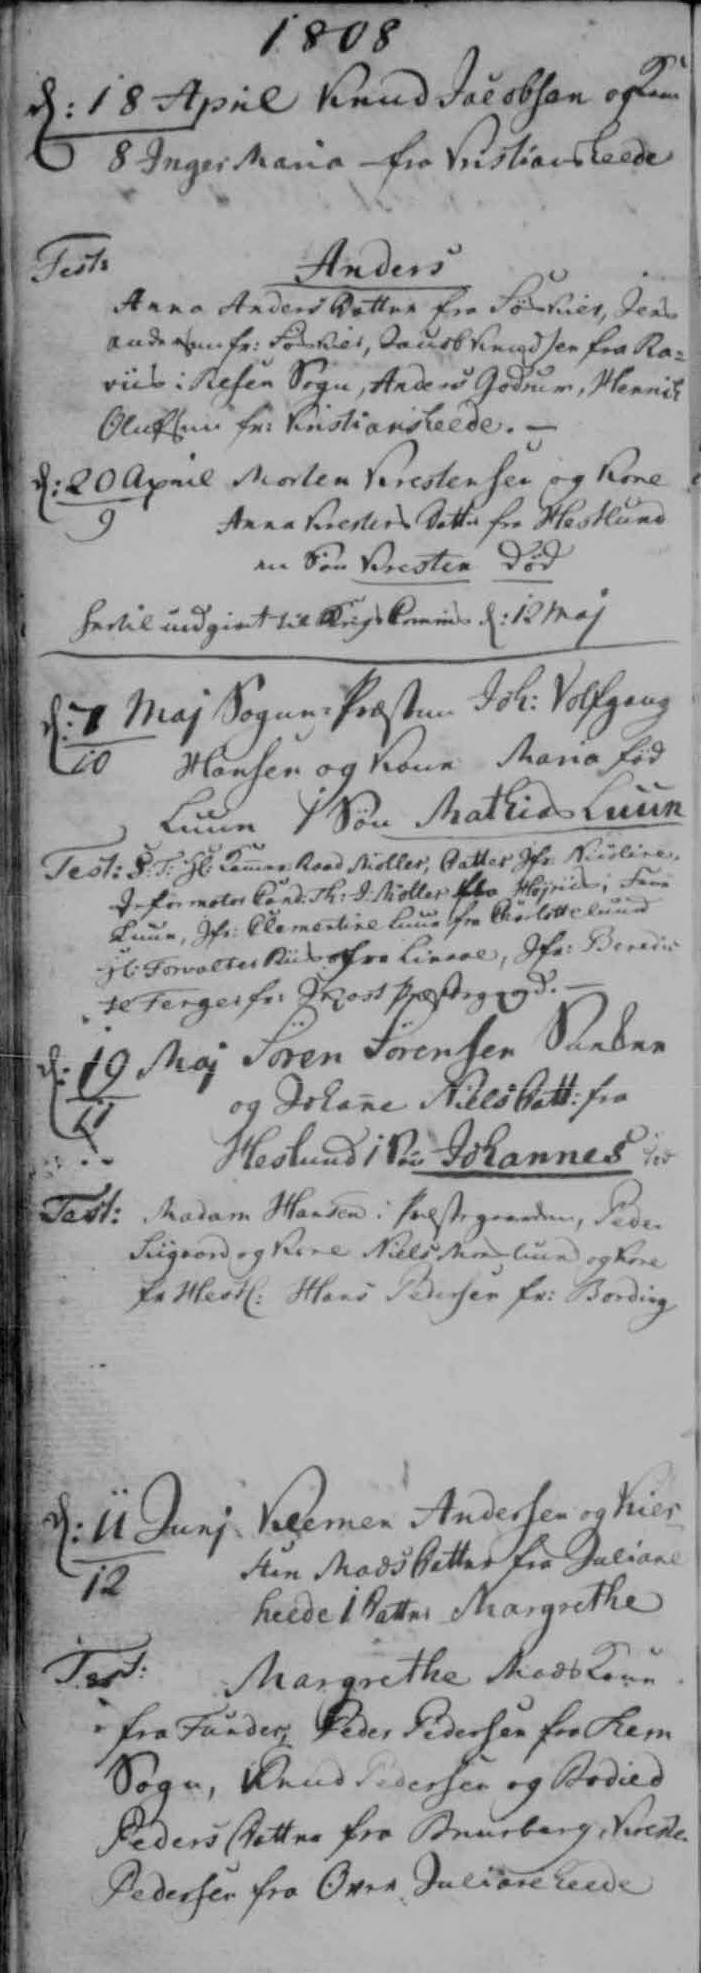 1808
d: 18 April Knud Jacobsen og Kone
8 Inger Maria fra Kristiansheede
Test:
Anders
Anna Anders Datter fra Jens
Andersen fr: Jacob Knudsen fra Ra=
viis i Resen Sogn, Anders Godrum, Henrik
Olufsen fr: Kristiansheede. —
d: 20 April Morten Krestensen og Kone
9 Anna Kresters Datter fra Hestlund
en Søn Kresten Død
hertil indgivet til Krigs Commis d: 12 Maj
d: 7 Maj Sogne-Præsten Joh: Volfgang
10 Hansen og Kone Maria fød
Luun 1 Søn Mathias Luun
Test: S: T: Hl: Kammer Raad Møller, Datter Jfr: Nicoline,
Cand: Th: J. Møller fra
Luun, Jfr: Clementine Luun fra Charlottelund
Hl: Forvalter Riis fra Jfr: Benedic
te Fenger fr: Præstegaard. —
d: 19 Maj Sören Sörensen
11 og Johanne Niels Datt: fra
Heslund 1 Søn Johannes
Test: Madam Hansen i Præstegaarden, Peder
Siigaard og Kone Niels og Kone
fr Hestl: Hans Pedersen fr: Bording
d: 11 Junj Klemen Andersen og Kier
12 sten Mads Datter fra Juliane
heede 1 Datter Margrethe
Test: Margrethe Mads Kone
fra Funder, Peder Pedersen fra Them
Sogn, Knud Pedersen og Bodied
Peders Datter fra Kresten
Pedersen fra Over Julianeheede